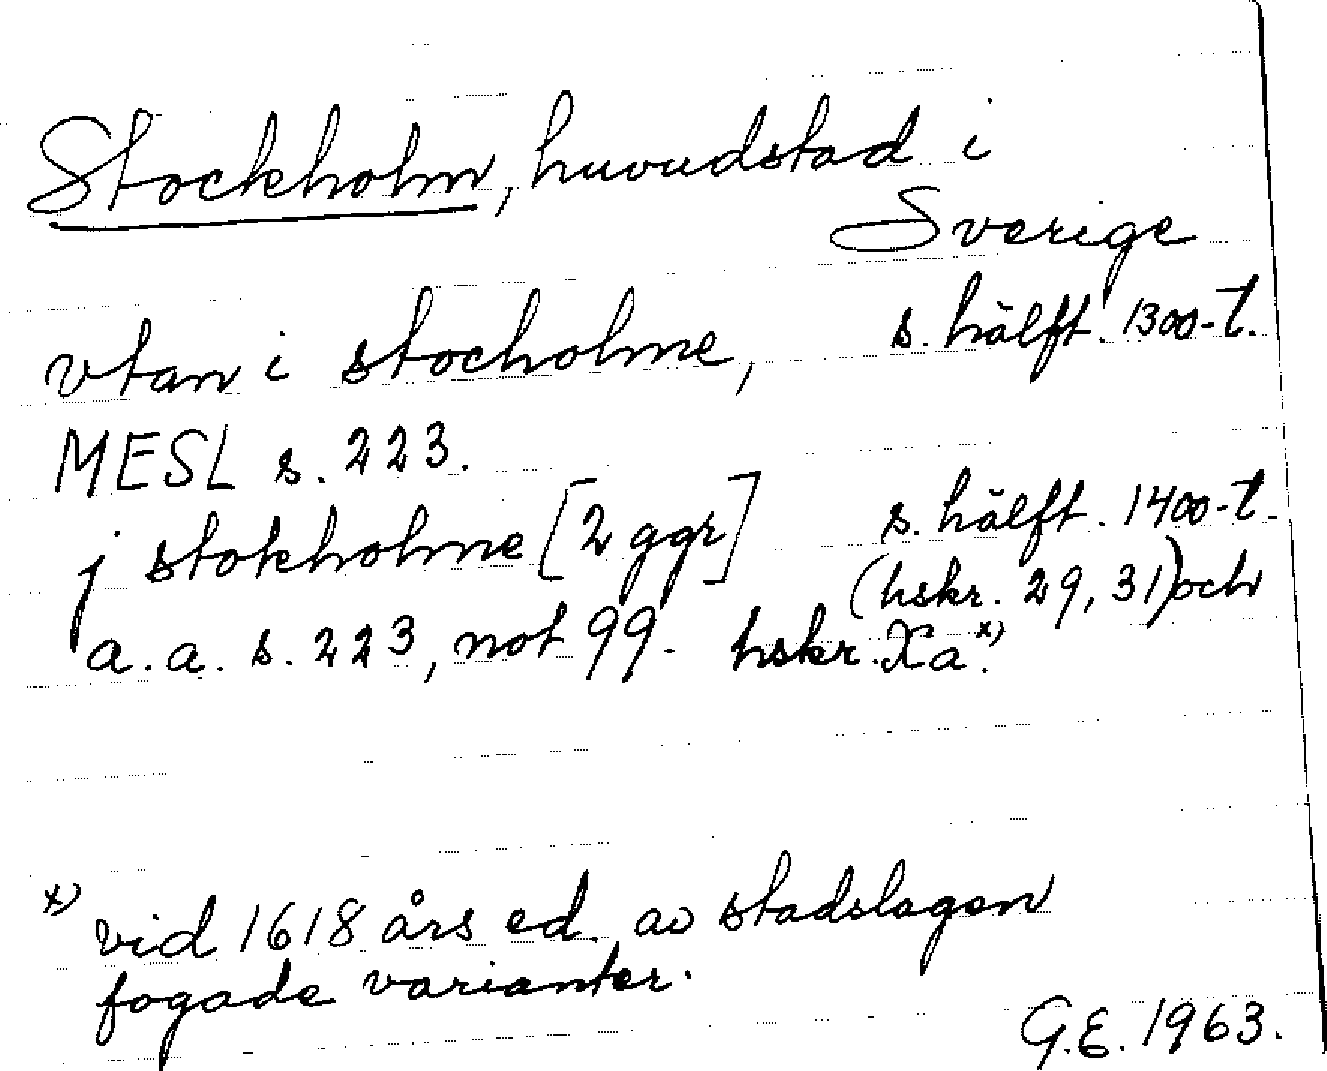 Stockholm, huvudstad i
Sverige
vtan i stocholme, s. hälft. 1300-t.
MESL s. 223.
j stokholme [2 ggr] s. hälft. 1400-t.
(hskr. 29, 31) och
a. a. s. 223, not 99. hskr. Xa x).
x) vid 1618 års ed. av stadslagen
fogade varianter.
G.E. 1963.